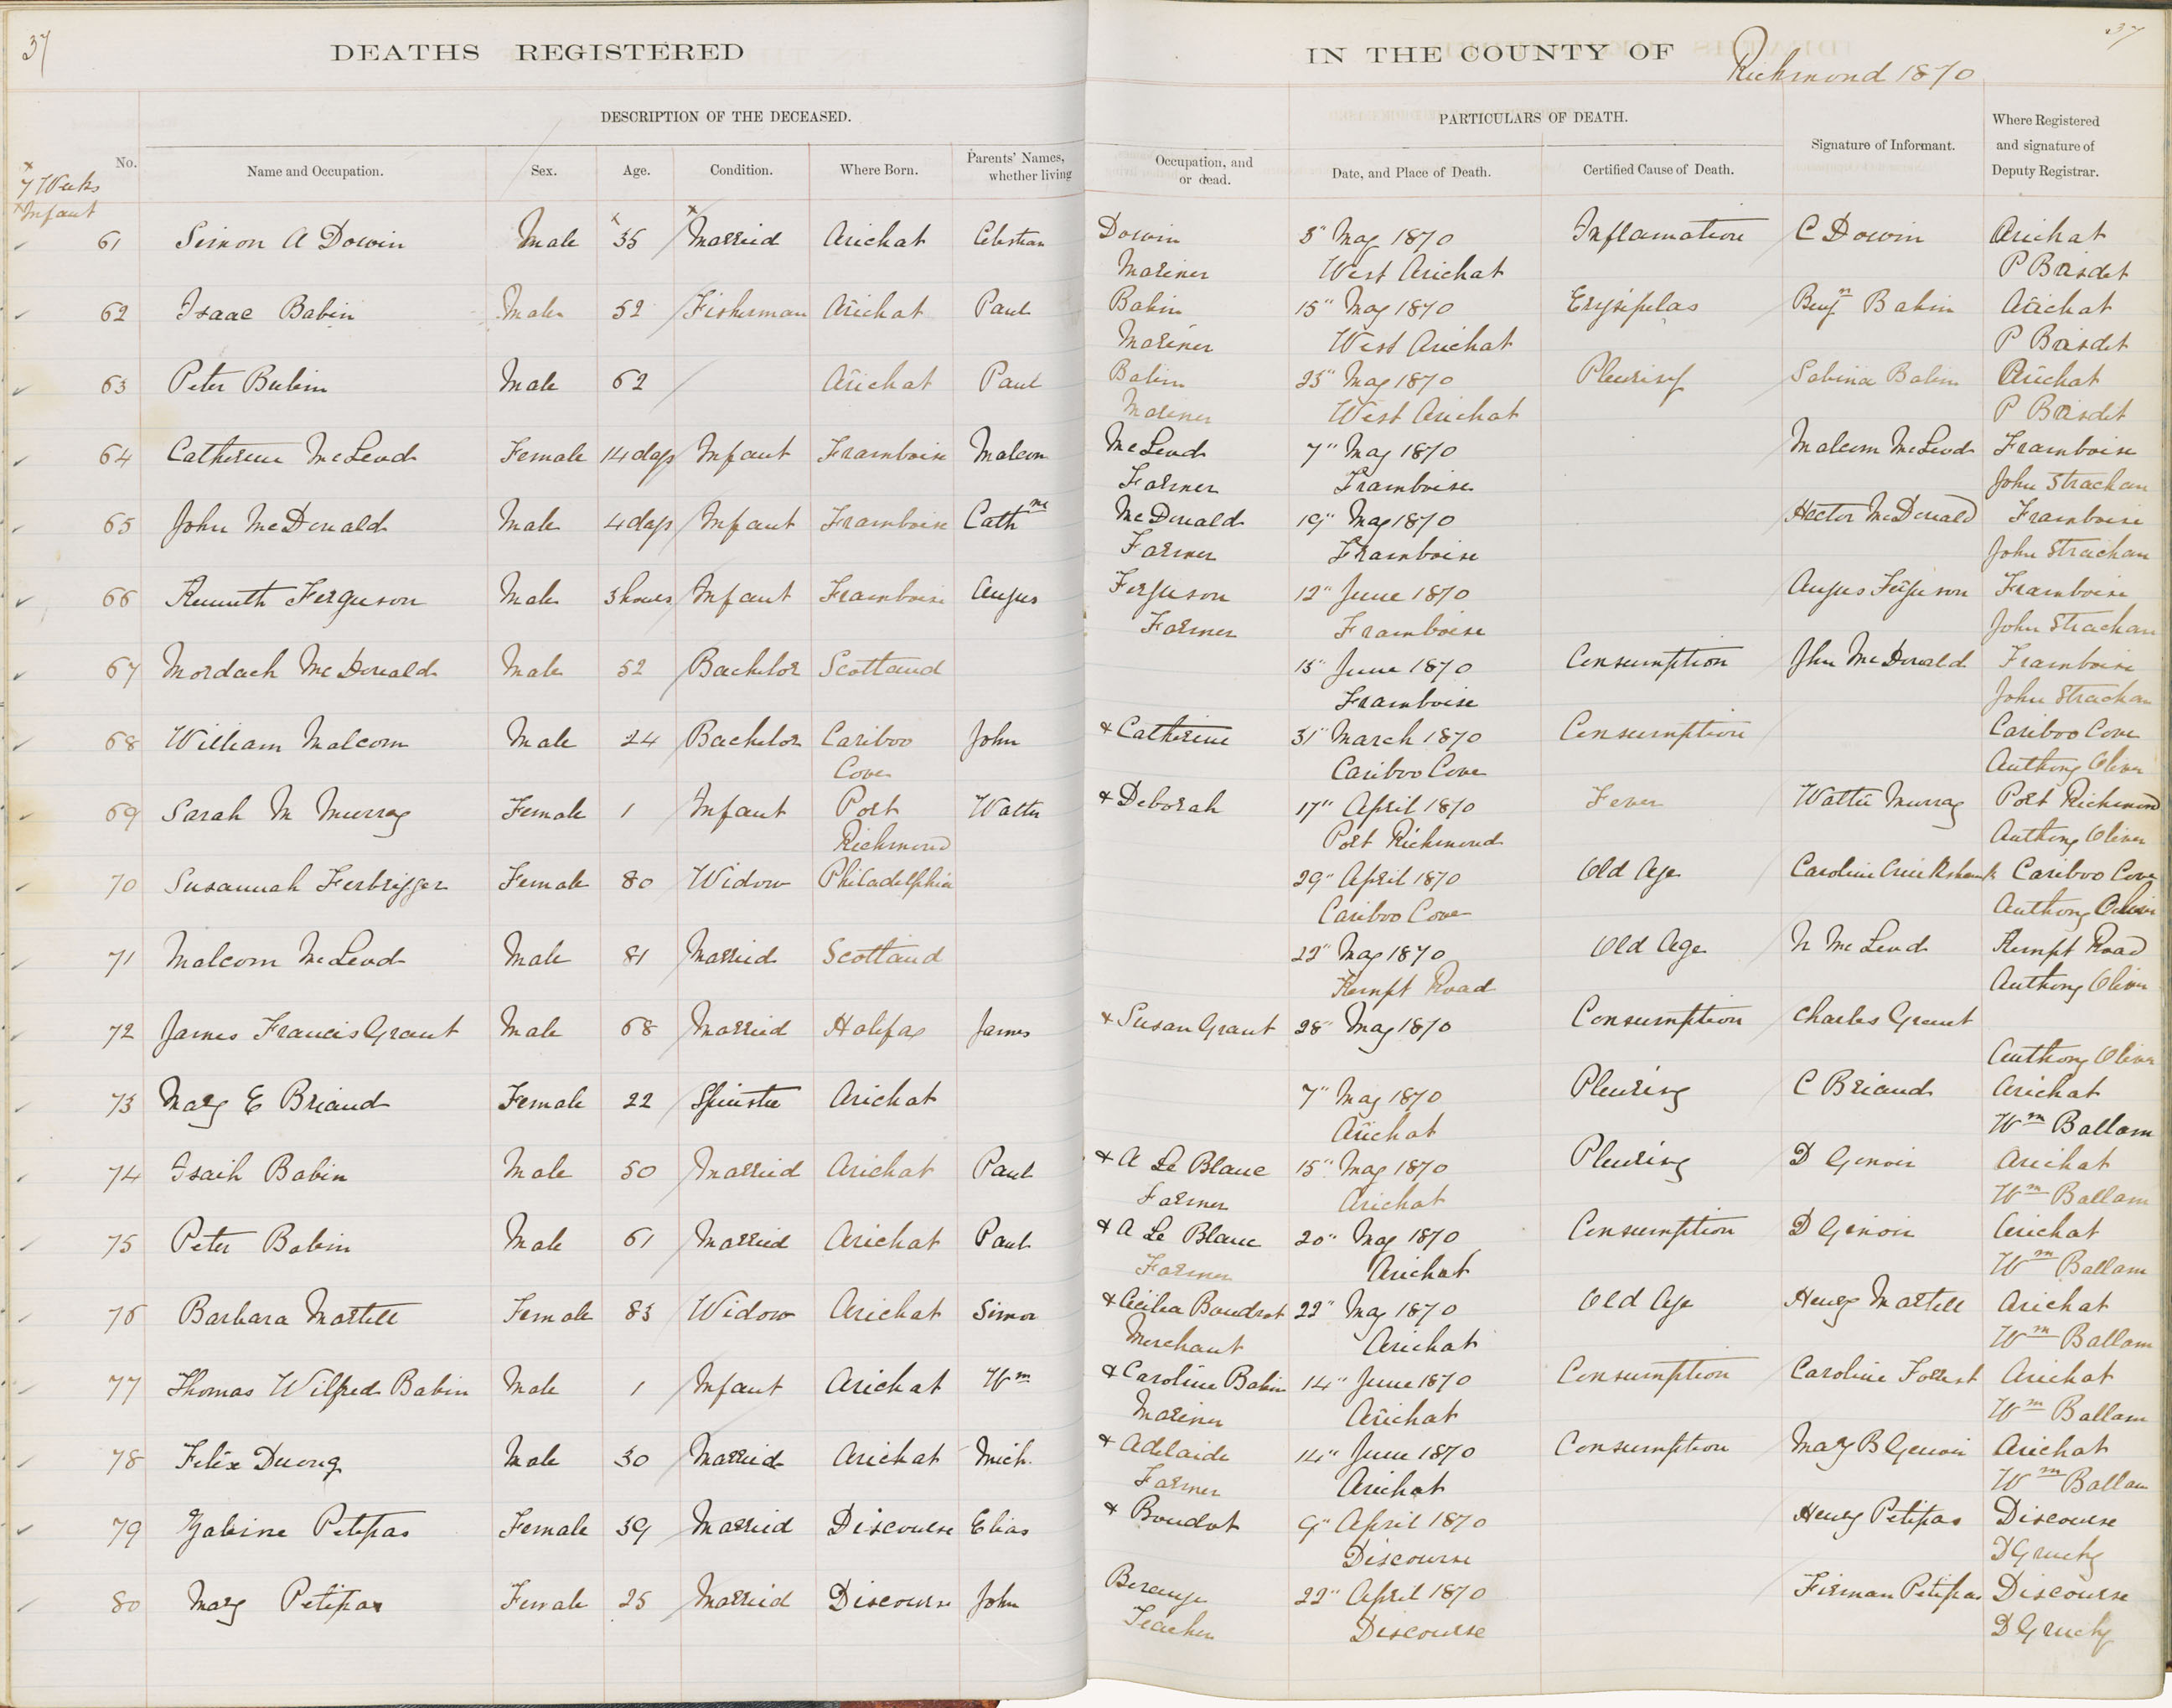 37
37
DEATHS REGISTERED IN THE COUNTY OF Richmond 1870
DESCRIPTION OF THE DECEASED. PARTICULARS OF DEATH.
No. Name and Occupation. Sex. Age. Condition. Where Born. Parents' Names, whether living Occupation, and or dead. Date, and Place of Death. Certified Cause of Death. Signature of Informant. Where Registered and signature of Deputy Registrar.
x
7 Weeks
x Infant
61 Simon A Dowin Male x 35 x Married Arichat Celestian Dowin 3" May 1870 Inflamation C Dowin Arichat
Mariner West Arichat P Bisdet
62 Isaac Babin Male 52 Fisherman Arichat Paul Babin 15" May 1870 Erysipelas Benjn Babin Arichat
Mariner West Arichat P Bisdet
63 Peter Bubin Male 62 Arichat Paul Babin 23" May 1870 Pleurisy Sabina Babin Arichat
Mariner West Arichat P Bisdet
64 Catherine McLeod Female 14 days Infant Framboise Malcom McLeod 7" May 1870 Malcom McLeod Framboise
Farmer Framboise John Strachan
65 John McDonald Male 4 days Infant Framboise Cathne McDonald 19" May 1870 Hector McDonald Framboise
Farmer Framboise John Strachan
66 Kenneth Ferguson Male 3 hours Infant Framboise Angus Ferguson 12" June 1870 Angus Ferguson Framboise
Farmer Framboise John Strachan
67 Mordach McDonald Male 52 Bachelor Scotland 15" June 1870 Consumption Jhn McDonald Framboise
Framboise John Strachan
68 William Malcom Male 24 Bachelor Cariboo John & Catherine 31" March 1870 Consumption Cariboo Cove
Cove Cariboo Cove Anthony Oliver
69 Sarah M Murray Female 1 Infant Port Walter & Deborah 17" April 1870 Fever Walter Murray Port Richmond
Richmond Port Richmond Anthony Oliver
70 Susannah Ferbrigger Female 80 Widow Philadelphia 29" April 1870 Old Age Caroline Cruikshank Cariboo Cove
Cariboo Cove Anthony Oliver
71 Malcom McLeod Male 81 Married Scotland 22" May 1870 Old Age N McLeod Kempt Road
Kempt Road Anthony Oliver
72 James Francis Grant Male 68 Married Halifax James & Susan Grant 28" May 1870 Consumption Charles Grant
Anthony Oliver
73 Mary E Briand Female 22 Spinster Arichat 7" May 1870 Pleurisy C Briand Arichat
Arichat Wm Ballam
74 Isaih Babin Male 50 Married Arichat Paul & A Le Blanc 15" May 1870 Pleurisy D Genoir Arichat
Farmer Arichat Wm Ballam
75 Peter Babin Male 61 Married Arichat Paul & A Le Blanc 20" May 1870 Consumption D Genoir Arichat
Farmer Arichat Wm Ballam
76 Barbara Martell Female 83 Widow Arichat Simon & Cecilia Boudrot 22" May 1870 Old Age Henry Martell Arichat
Merchant Arichat Wm Ballam
77 Thomas Wilfred Babin Male 1 Infant Arichat Wm & Caroline Babin 14" June 1870 Consumption Caroline Forrest Arichat
Mariner Arichat Wm Ballam
78 Felix Duong Male 30 Married Arichat Mich. & Adelaide 14" June 1870 Consumption Mary B Genoir Arichat
Farmer Arichat Wm Ballam
79 Zabine Petipas Female 39 Married Discourse Elias & Boudot 9" April 1870 Henry Petipas Discourse
Discourse D Gruchy
80 Mary Petipas Female 25 Married Discourse John 22" April 1870 Firman Petipas Discourse
Teacher Discourse D Gruchy